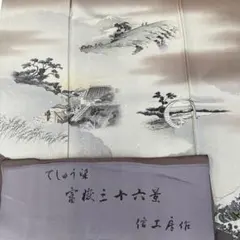 てしゅう望
富嶽三十六景
信工房作